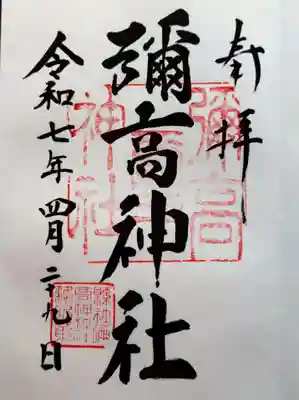 奉拝
彌高神社
令和七年四月二十九日
彌高神社